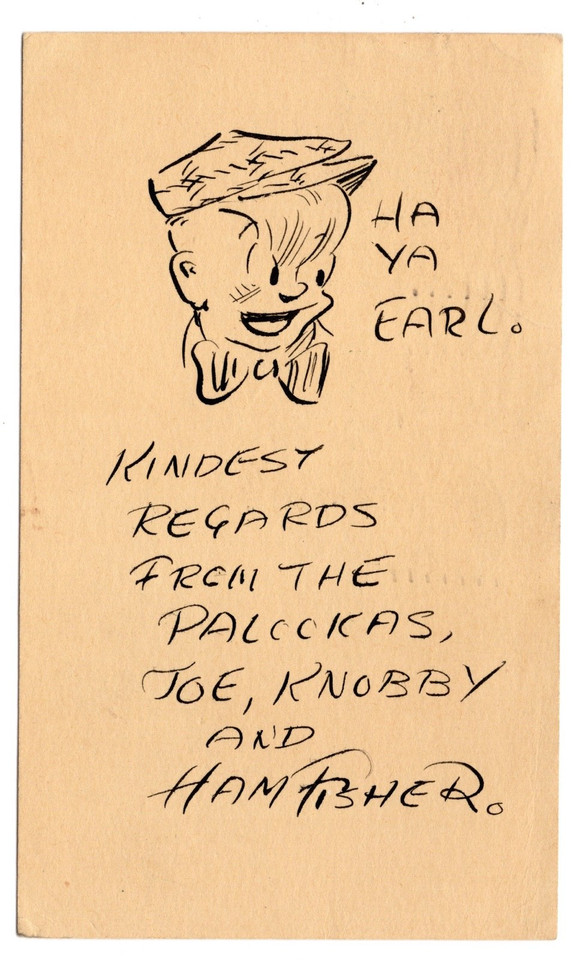 HA
YA
EARL.
KINDEST
REGARDS
FROM THE
PALOOKAS,
JOE, KNOBBY
AND
HAM FISHER.